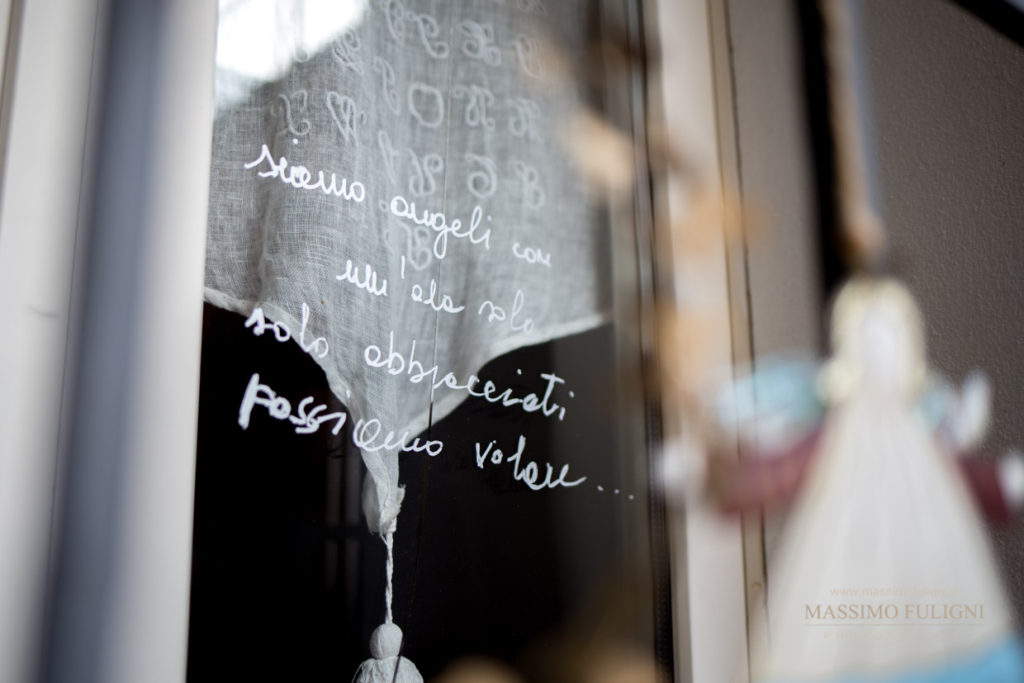 siamo angeli con
un'ala sola
solo abbracciati
possiamo volare...
www.massimofuligni.it
MASSIMO FULIGNI